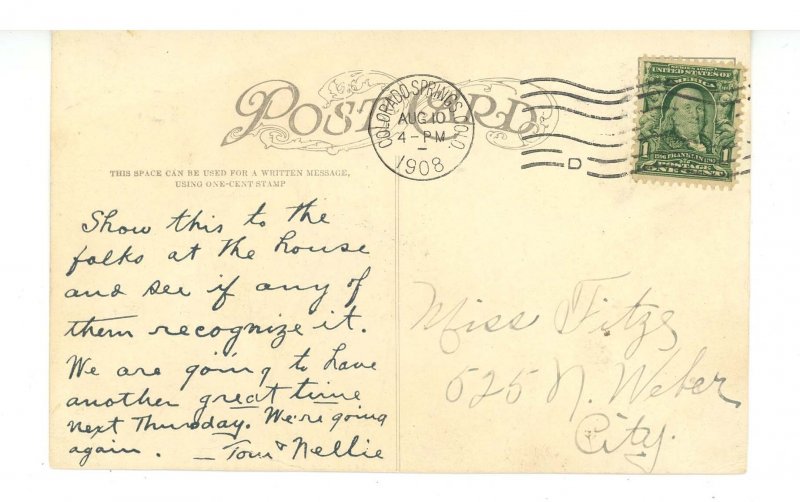 POST CARD
COLORADO SPRINGS, COLO.
AUG 10
4-PM
1908
D
SERIES 1902
UNITED STATES OF
AMERICA
1 FRANKLIN 1
POSTAGE
ONE CENT
THIS SPACE CAN BE USED FOR A WRITTEN MESSAGE,
USING ONE-CENT STAMP
Show this to the
folks at the house
and see if any of
them recognize it.
We are going to have
another great time
next Thursday. We're going
again. — Tom & Nellie
Miss Fitzs
525 N. Weber
City.